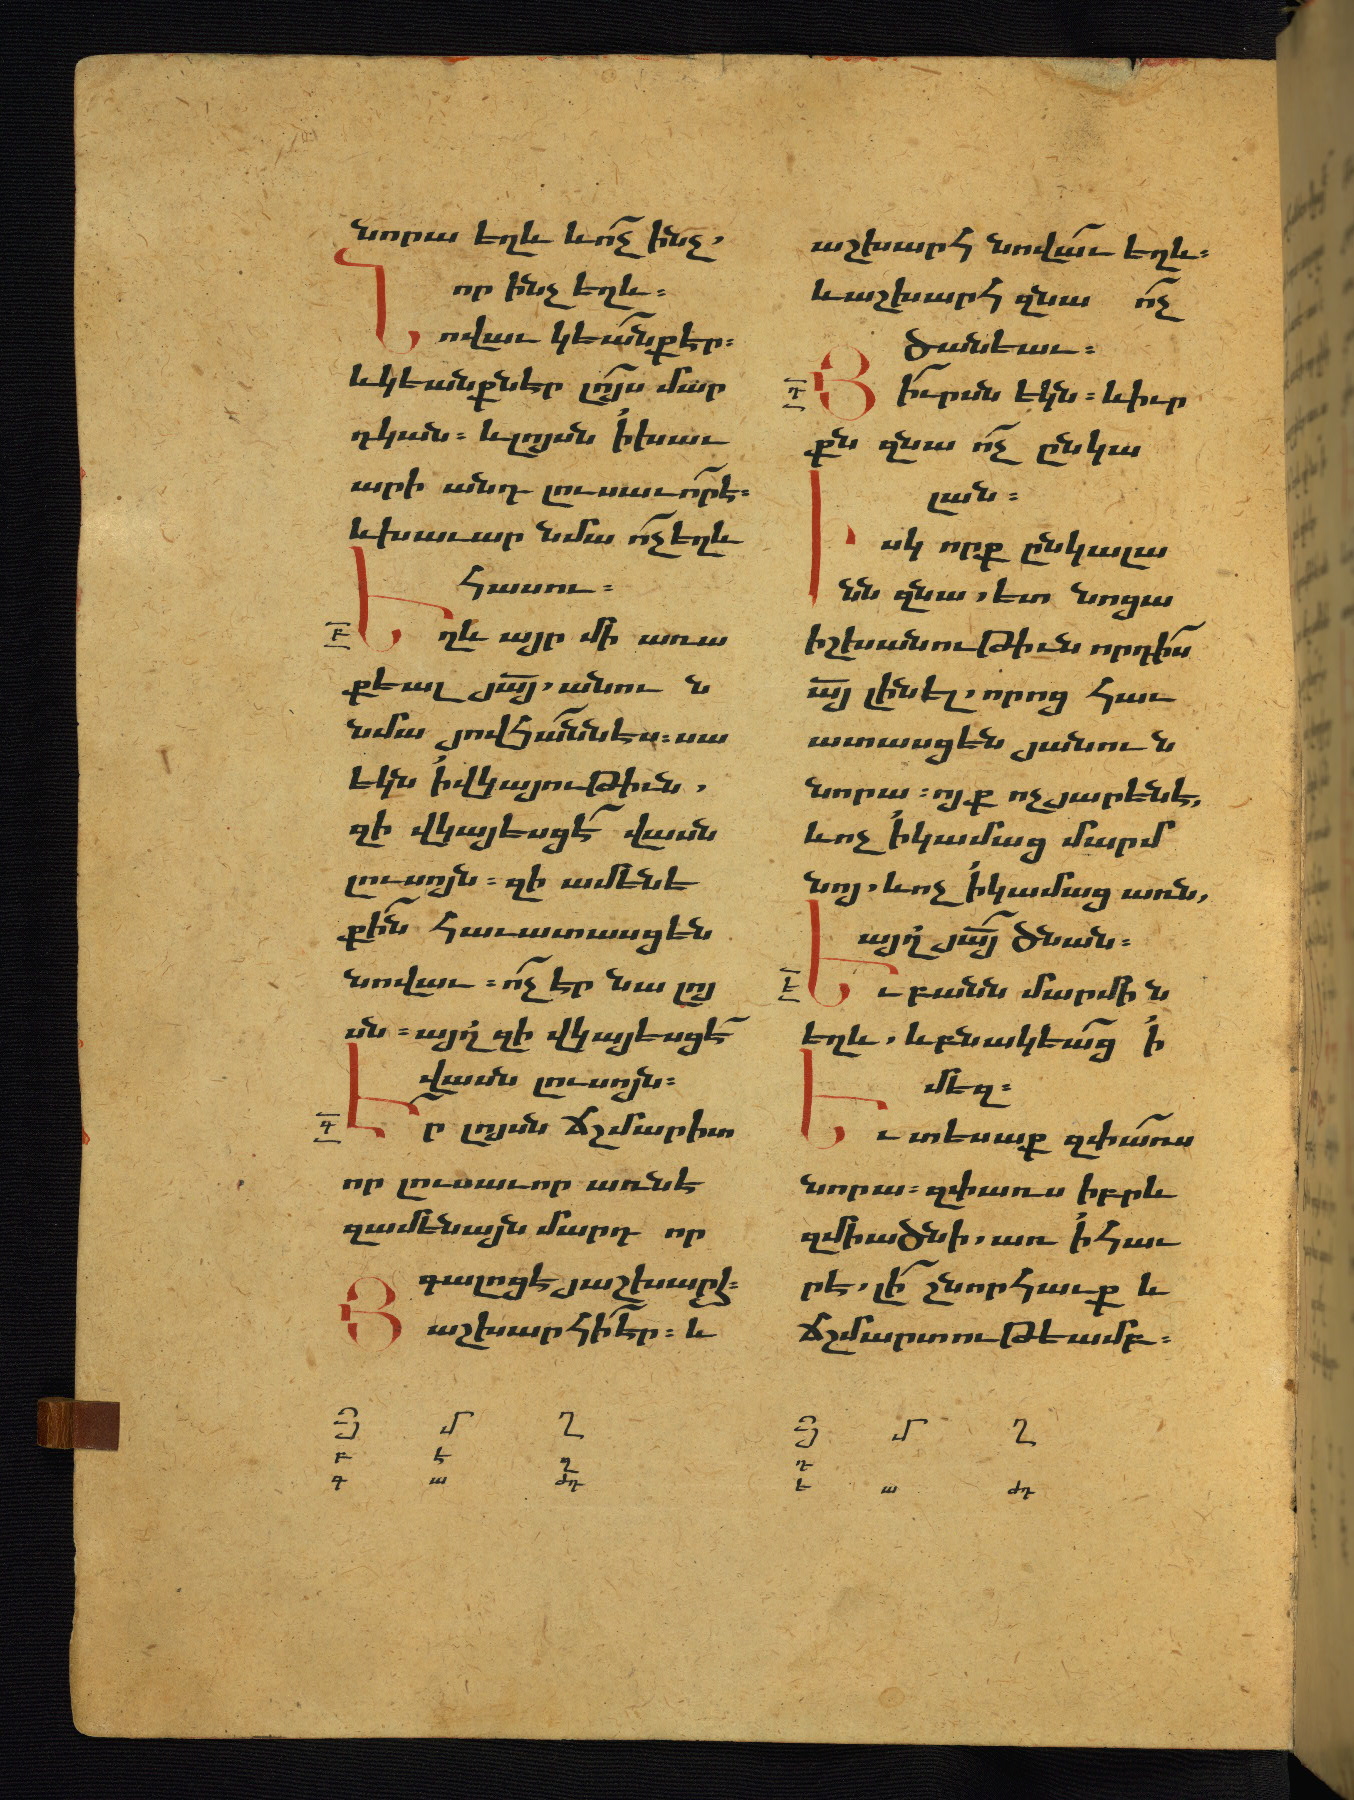 նորա եղև և ոչ ինչ,
որ ինչ եղև։
Նովաւ կեանք էր։
և կեանքն էր լոյս մար
դկան։ և լոյսն ի խաւ
արի անդ լուսաւորէ։
և խաւար նմա ոչ եղև
հասու։
բ Եղև այր մի առա
քեալ յայ, անուն
նմա յովհաննես։ սա
եկն ի վկայութիւն,
զի վկայեսցէ վասն
լուսոյն։ զի ամենե
քին հաւատասցեն
նովաւ։ ոչ էր նա լոյ
սն։ այղ զի վկայեսցէ
վասն լուսոյն։
գ Էր լոյսն ճշմարիտ
որ լուսաւոր առնէ
զամենայն մարդ որ
գալոց է յաշխարհ։
Յաշխարհի էր։ և
աշխարհ նովաւ եղև։
և աշխարհ զնա ոչ
ծանեաւ։
դ Յիւրսն եկն։ և իւր
քն զնա ոչ ընկա
լան։
Իսկ որք ընկալա
նն զնա, ետ նոցա
իշխանութիւն որդիս
այ լինել, որոց հաւ
ատասցեն յանուն
նորա։ ոյք ոչ յարենէ,
և ոչ ի կամաց մարմ
նոյ, և ոչ ի կամաց առն,
այղ յայ ծնան։
ե Եւ բանն մարմին
եղև, և բնակեաց ի
մեզ։
Եւ տեսաք զփառս
նորա։ զփառս իբրև
զմիածնի, առ ի հաւ
րէ, լի շնորհաւք և
ճշմարտութեամբ։
Յ մ ղ
բ է զ
գ ա ժդ
Յ մ ղ
դ
ե ա ժդ